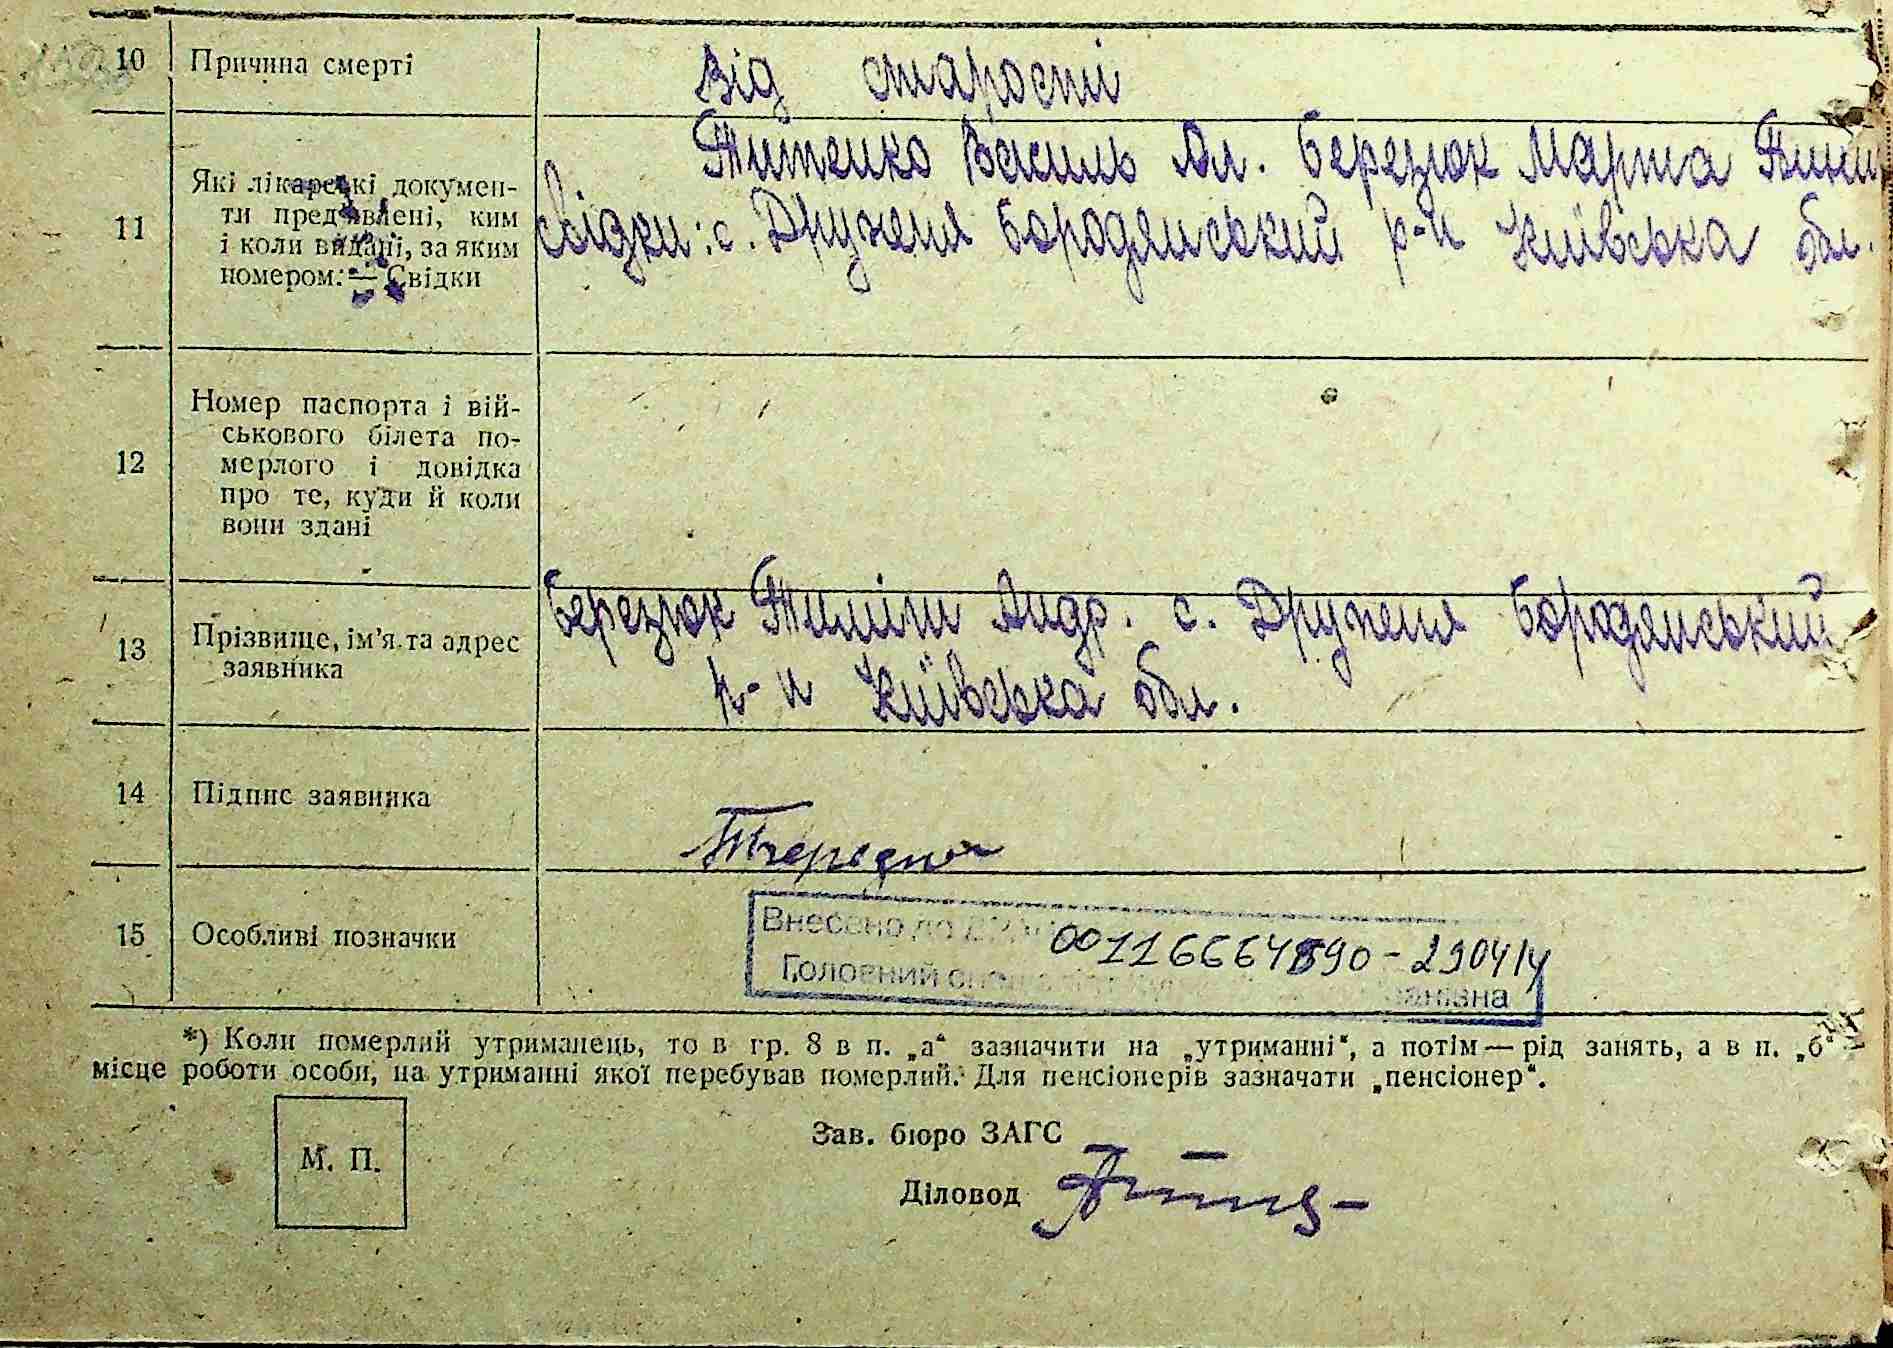 10 Причина смерті від старості
Титенко Василь Ал. Березюк Марта
11 Які лікарські докумен-
ти предявлені, ким
і коли видані, за яким
номером. — Свідки
свідки: с. Дружня Бородянський р-н Київська обл.
12 Номер паспорта і вій-
ськового білета по-
мерлого і довідка
про те, куди й коли
вони здані
13 Прізвище, ім'я та адрес
заявника
Березюк Тиміш Андр. с. Дружня Бородянський
р-н Київська обл.
14 Підпис заявника
15 Особливі позначки
Внесено до
00116664890-290414
Головний
*) Коли померлий утриманець, то в гр. 8 в п. „а“ зазначити на „утриманні“, а потім — рід занять, а в п. „б“
місце роботи особи, на утриманні якої перебував померлий. Для пенсіонерів зазначати „пенсіонер“.
М. П.
Зав. бюро ЗАГС
Діловод